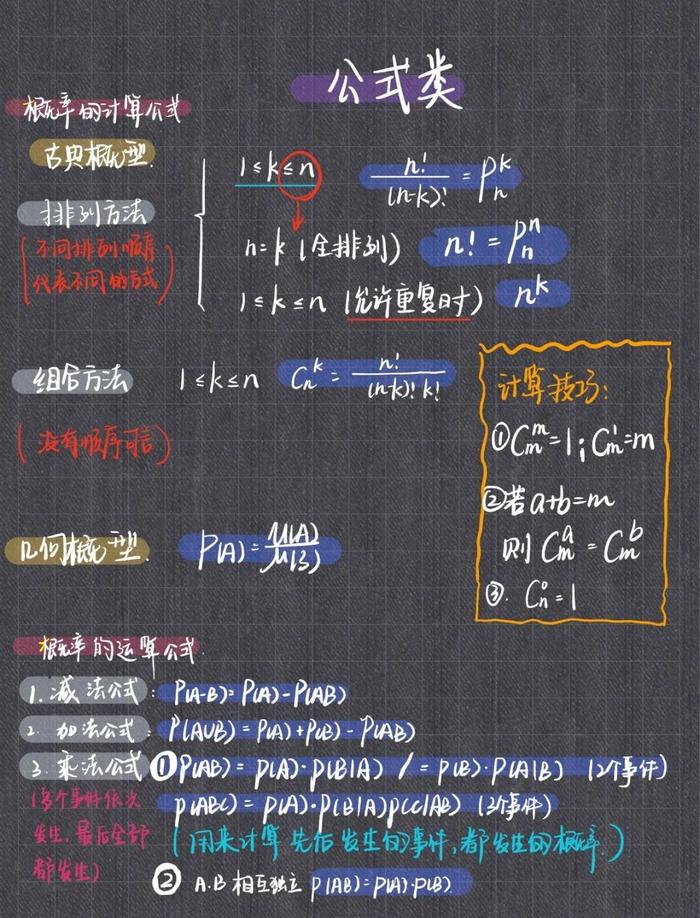 公式类
概率的计算公式
古典概型.
排列方法
(不同排列顺序
代表不同的方式)
1≤k≤n n!/(n-k)! = P_n^k
n=k (全排列) n! = P_n^n
1≤k≤n (允许重复时) n^k
组合方法 1≤k≤n C_n^k = n!/(n-k)!k!
(没有顺序可言)
计算技巧:
①C_m^m=1;C_m^1=m
②若a+b=m
则 C_m^a = C_m^b
③. C_n^0=1
几何概型. P(A)=μ(A)/μ(S)
概率的运算公式.
1. 减法公式: P(A-B)=P(A)-P(AB)
2. 加法公式: P(A∪B)=P(A)+P(B)-P(AB)
3. 乘法公式 ①P(AB)=P(A)·P(B|A) / =P(B)·P(A|B) (2个事件)
P(ABC)=P(A)·P(B|A)P(C|AB) (3个事件)
(多个事件依次
发生,最后全部
都发生)
(用来计算先后发生的事件,都发生的概率.)
② A.B相互独立 P(AB)=P(A)·P(B).